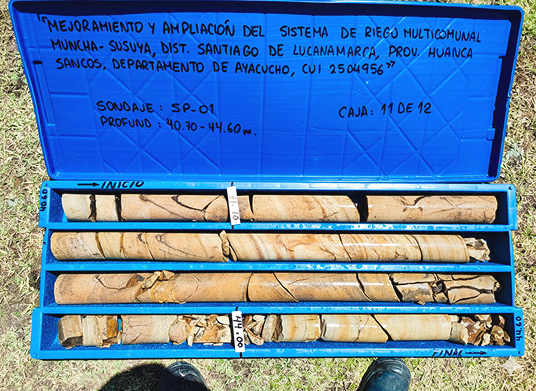 "MEJORAMIENTO Y AMPLIACIÓN DEL SISTEMA DE RIEGO MULTICOMUNAL
MUNCHA- SUSUYA, DIST. SANTIAGO DE LUCANAMARCA, PROV. HUANCA
SANCOS, DEPARTAMENTO DE AYACUCHO, CUI 2504956"
SONDAJE : SP-01
CAJA: 11 DE 12
PROFUND : 40.70-44.60 m.
→ INICIO
44.00
FINAL →
44.60